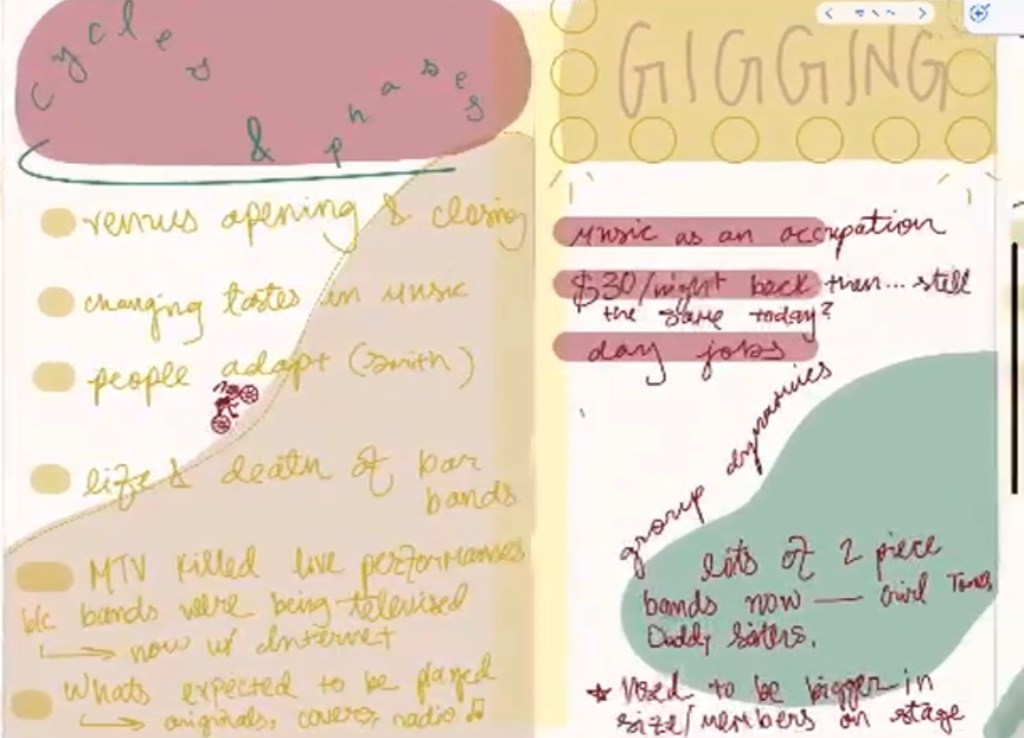 cycles
& phases
venues opening & closing
changing tastes in music
people adapt (Smith)
life & death of bar
bands
MTV killed live performances
b/c bands were being televised
now w/ Internet
Whats expected to be played
originals, covers, radio
GIGGING
music as an occupation
$30/night back then... still
the same today?
day jobs
group dynamics
lots of 2 piece
bands now —
Daddy Sisters.
* Used to be bigger in
size/members on stage